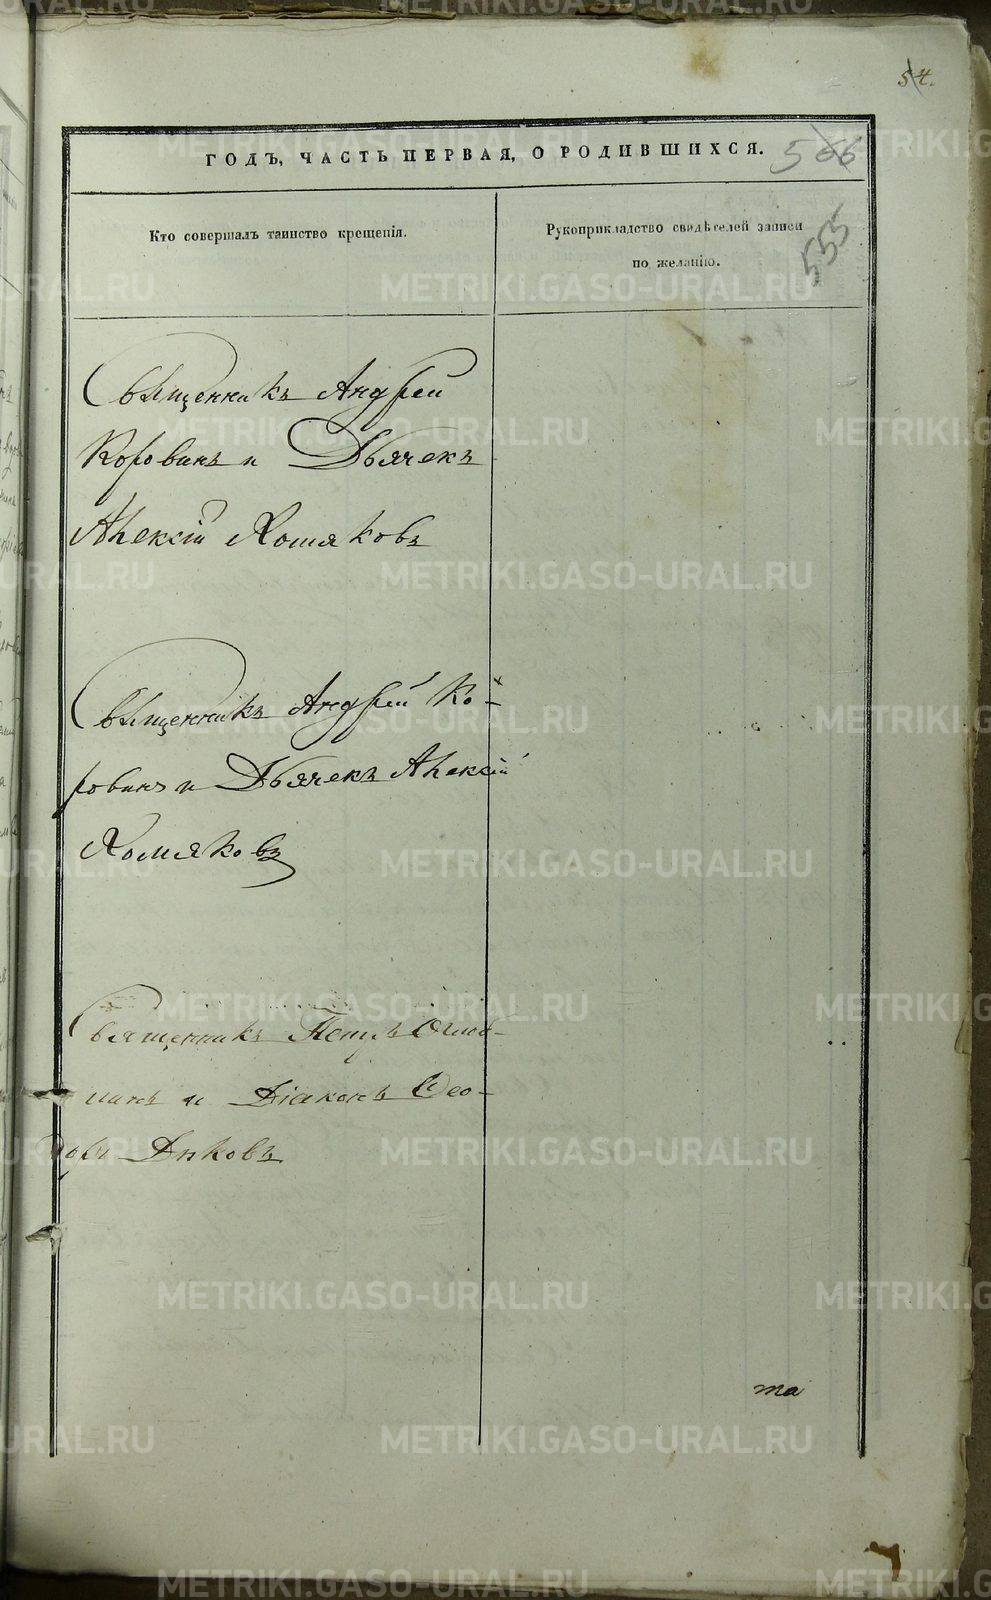 54.
ГОДЪ, ЧАСТЬ ПЕРВАЯ, О РОДИВШИХСЯ.
566
555
Кто совершалъ таинство крещенія.
Рукоприкладство свидѣтелей записи
по желанію.
Священникъ Андрей
Коровинъ и Дьячекъ
Алексій Хомяковъ
Священникъ Андрей Ко-
ровинъ и Дьячекъ Алексій
Хомяковъ
Священникъ Петръ
и Діаконъ Ѳео-
доръ Диковъ
та
METRIKI.GASO-URAL.RU